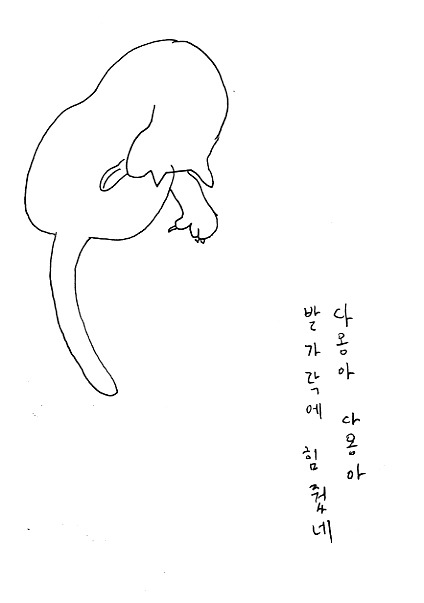 다옹아 다옹아
발가락에 힘 줬네